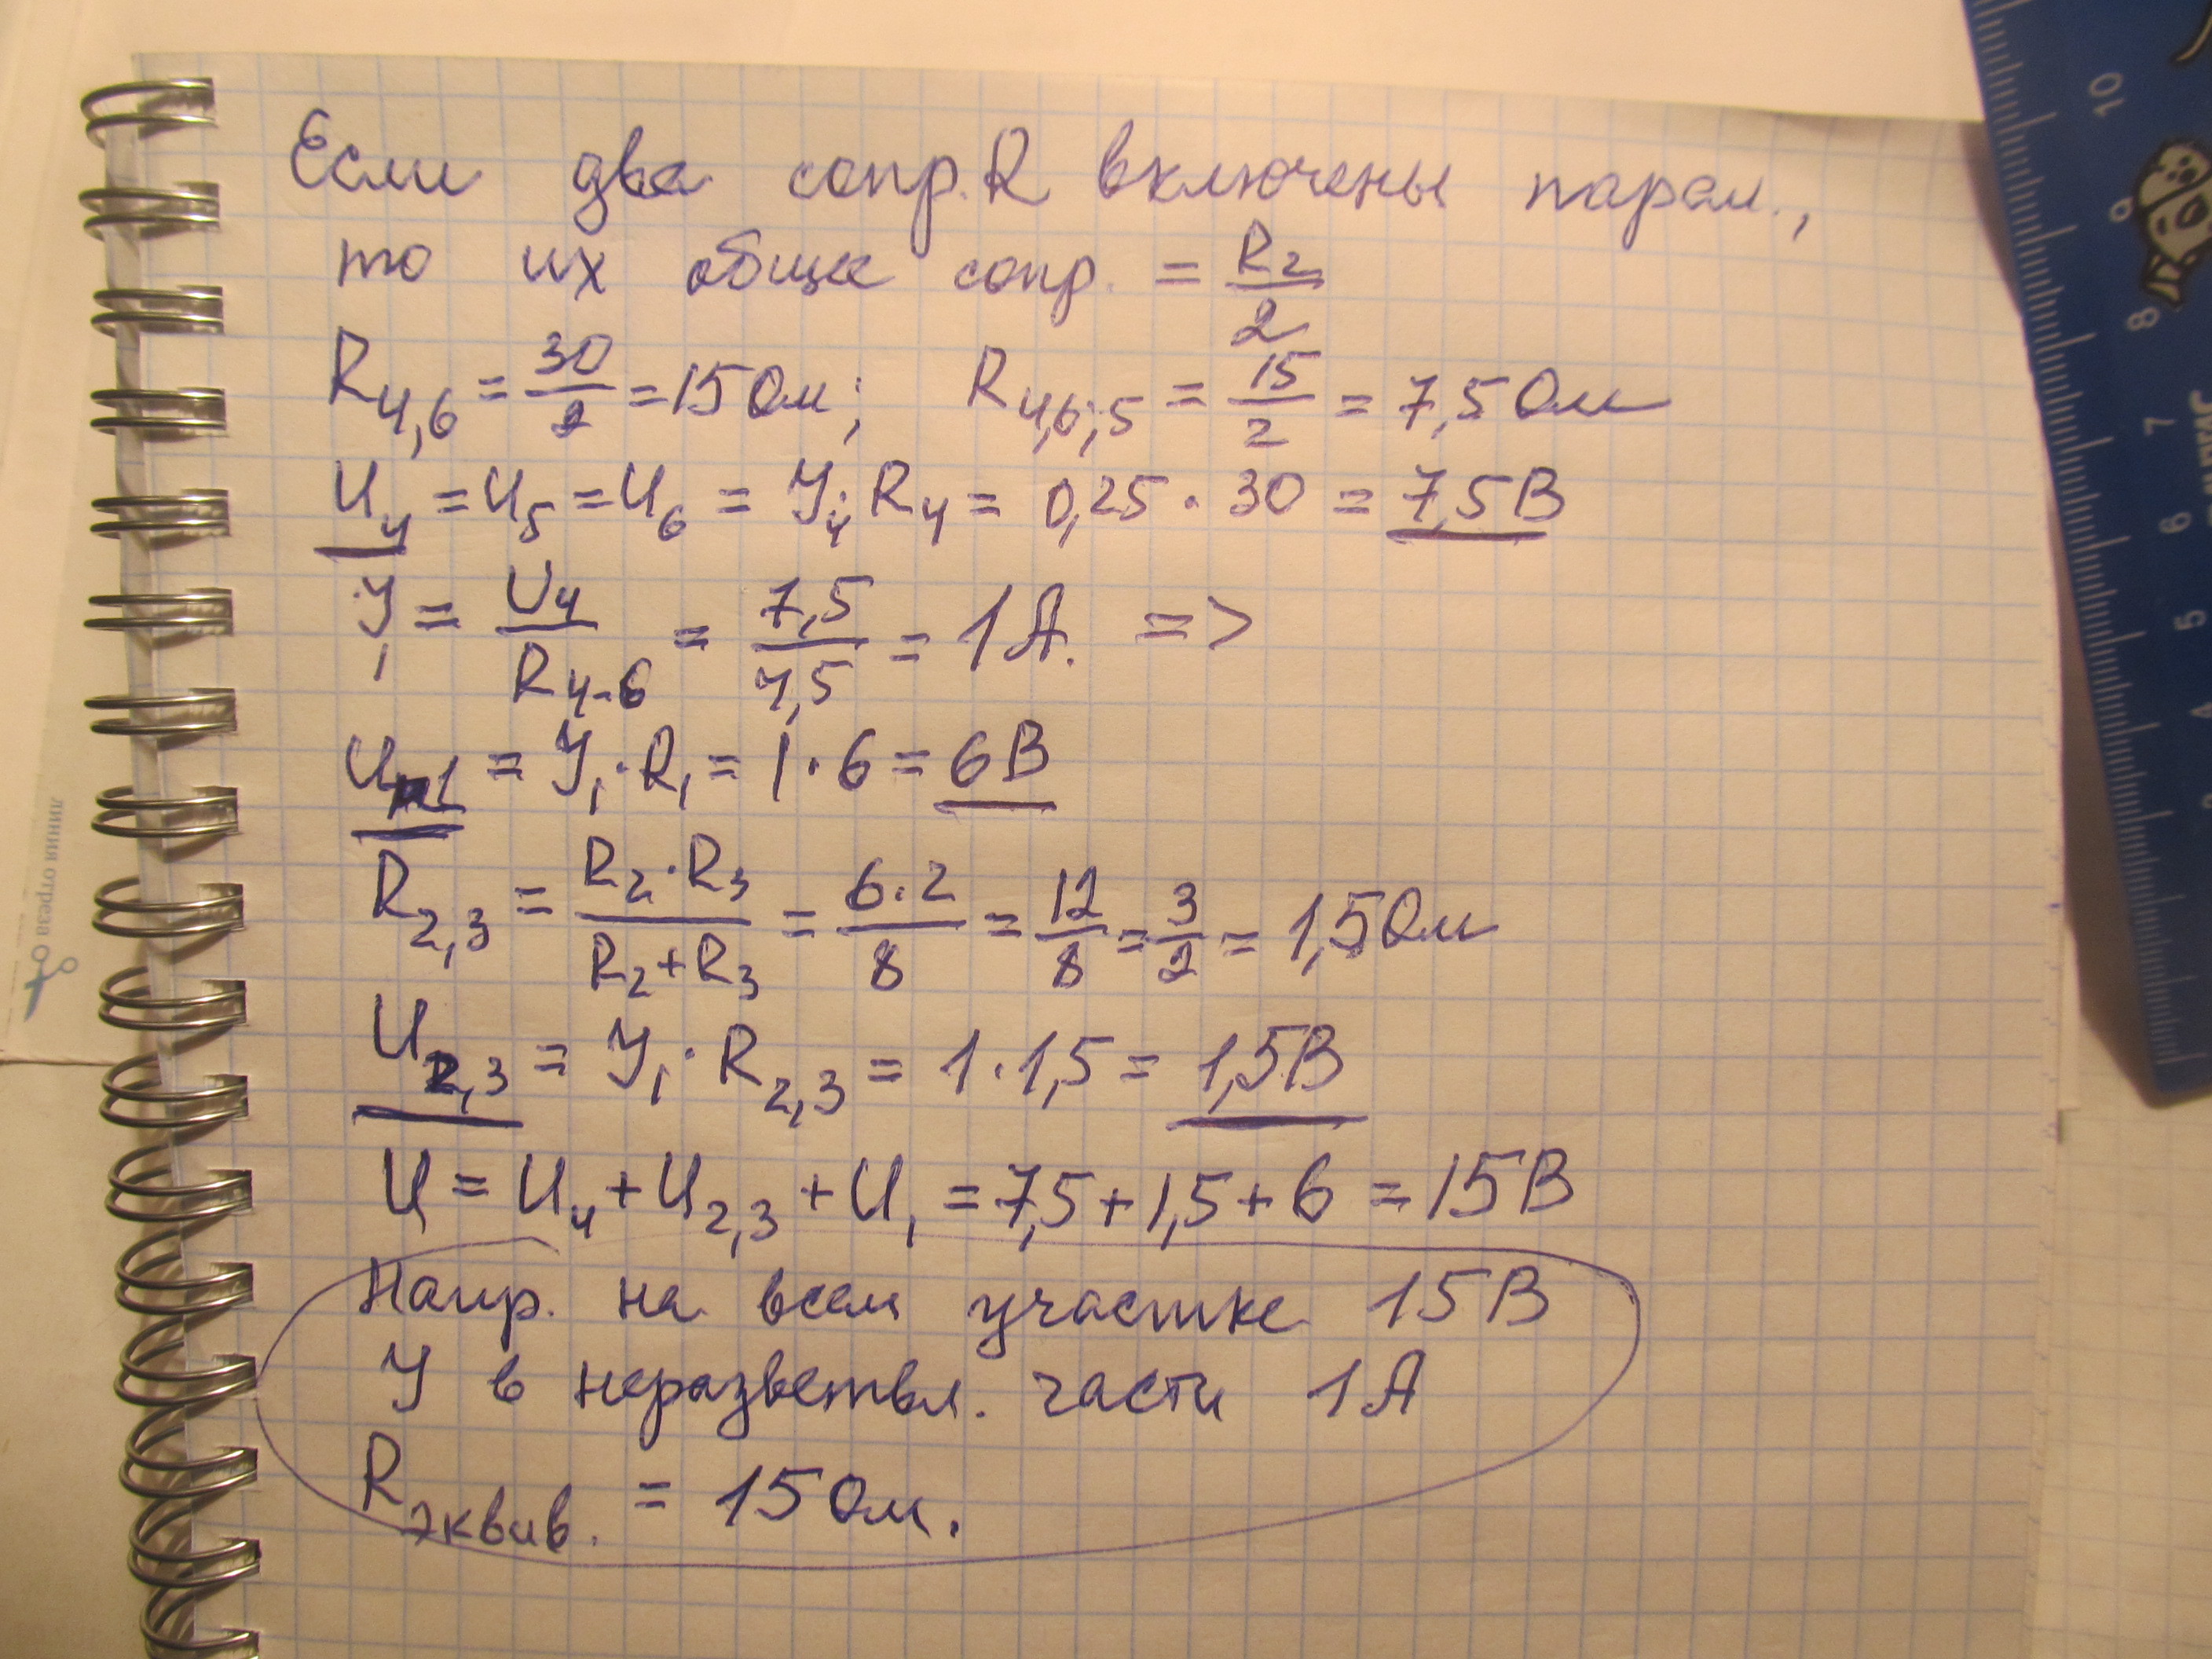 Если два сопр. R включены парал.,
то их общее сопр. = R₂/2
R₄,₆ = 30/2 = 15 Ом; R₄,₆;₅ = 15/2 = 7,5 Ом
U₄ = U₅ = U₆ = У₄·R₄ = 0,25 · 30 = 7,5 В
У₁ = U₄/R₄₋₆ = 7,5/7,5 = 1 А. =>
U₁ = У₁·R₁ = 1·6 = 6 В
R₂,₃ = R₂·R₃/R₂+R₃ = 6·2/8 = 12/8 = 3/2 = 1,5 Ом
U₂,₃ = У₁·R₂,₃ = 1·1,5 = 1,5 В
U = U₄ + U₂,₃ + U₁ = 7,5 + 1,5 + 6 = 15 В
Напр. на всем участке 15 В
У в неразветвл. части 1 А
Rэквив. = 15 Ом.
линия отреза
10
9
8
7
6
5
4